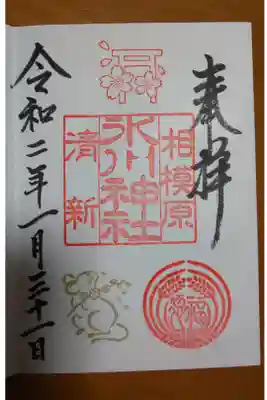 奉拝
相模原
氷川神社
清新
令和二年一月三十一日